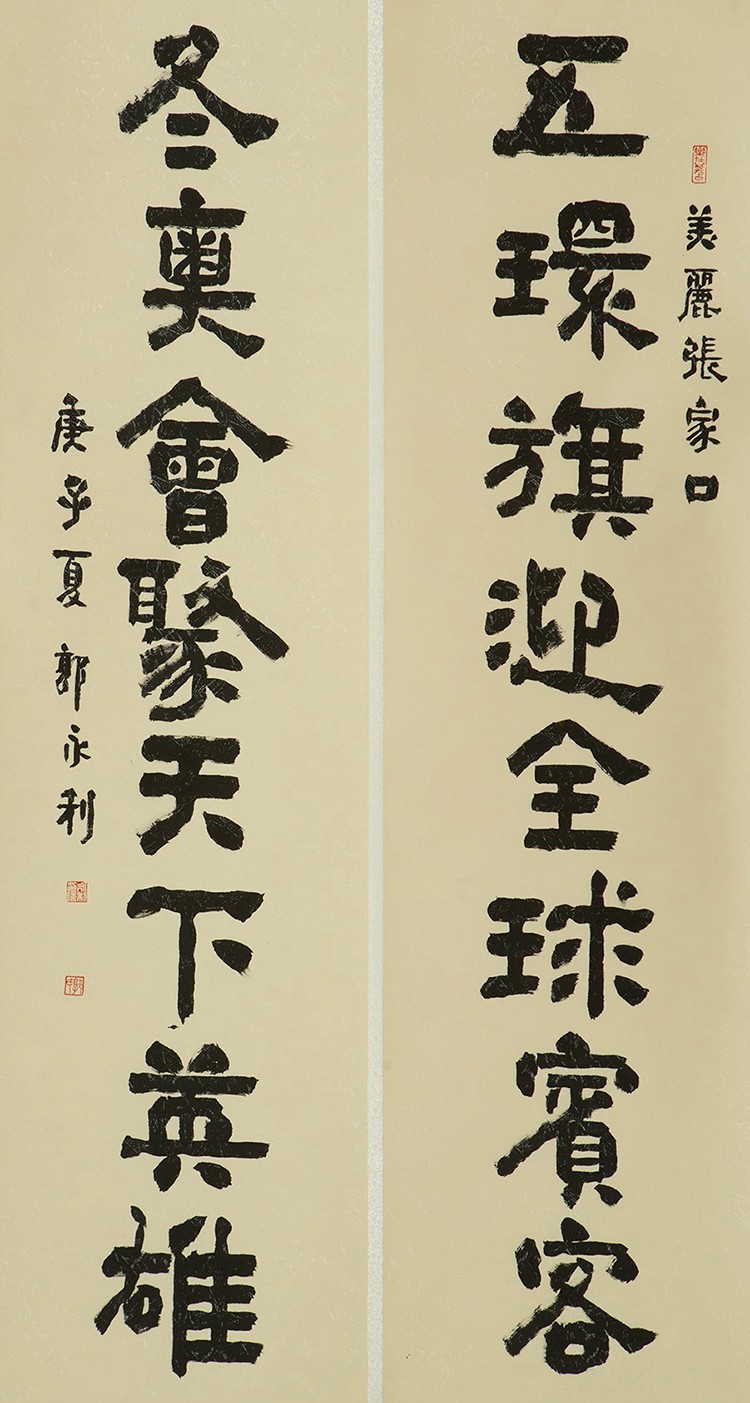 美麗張家口
五環旗迎全球賓客
冬奥會聚天下英雄
庚子夏郭永利